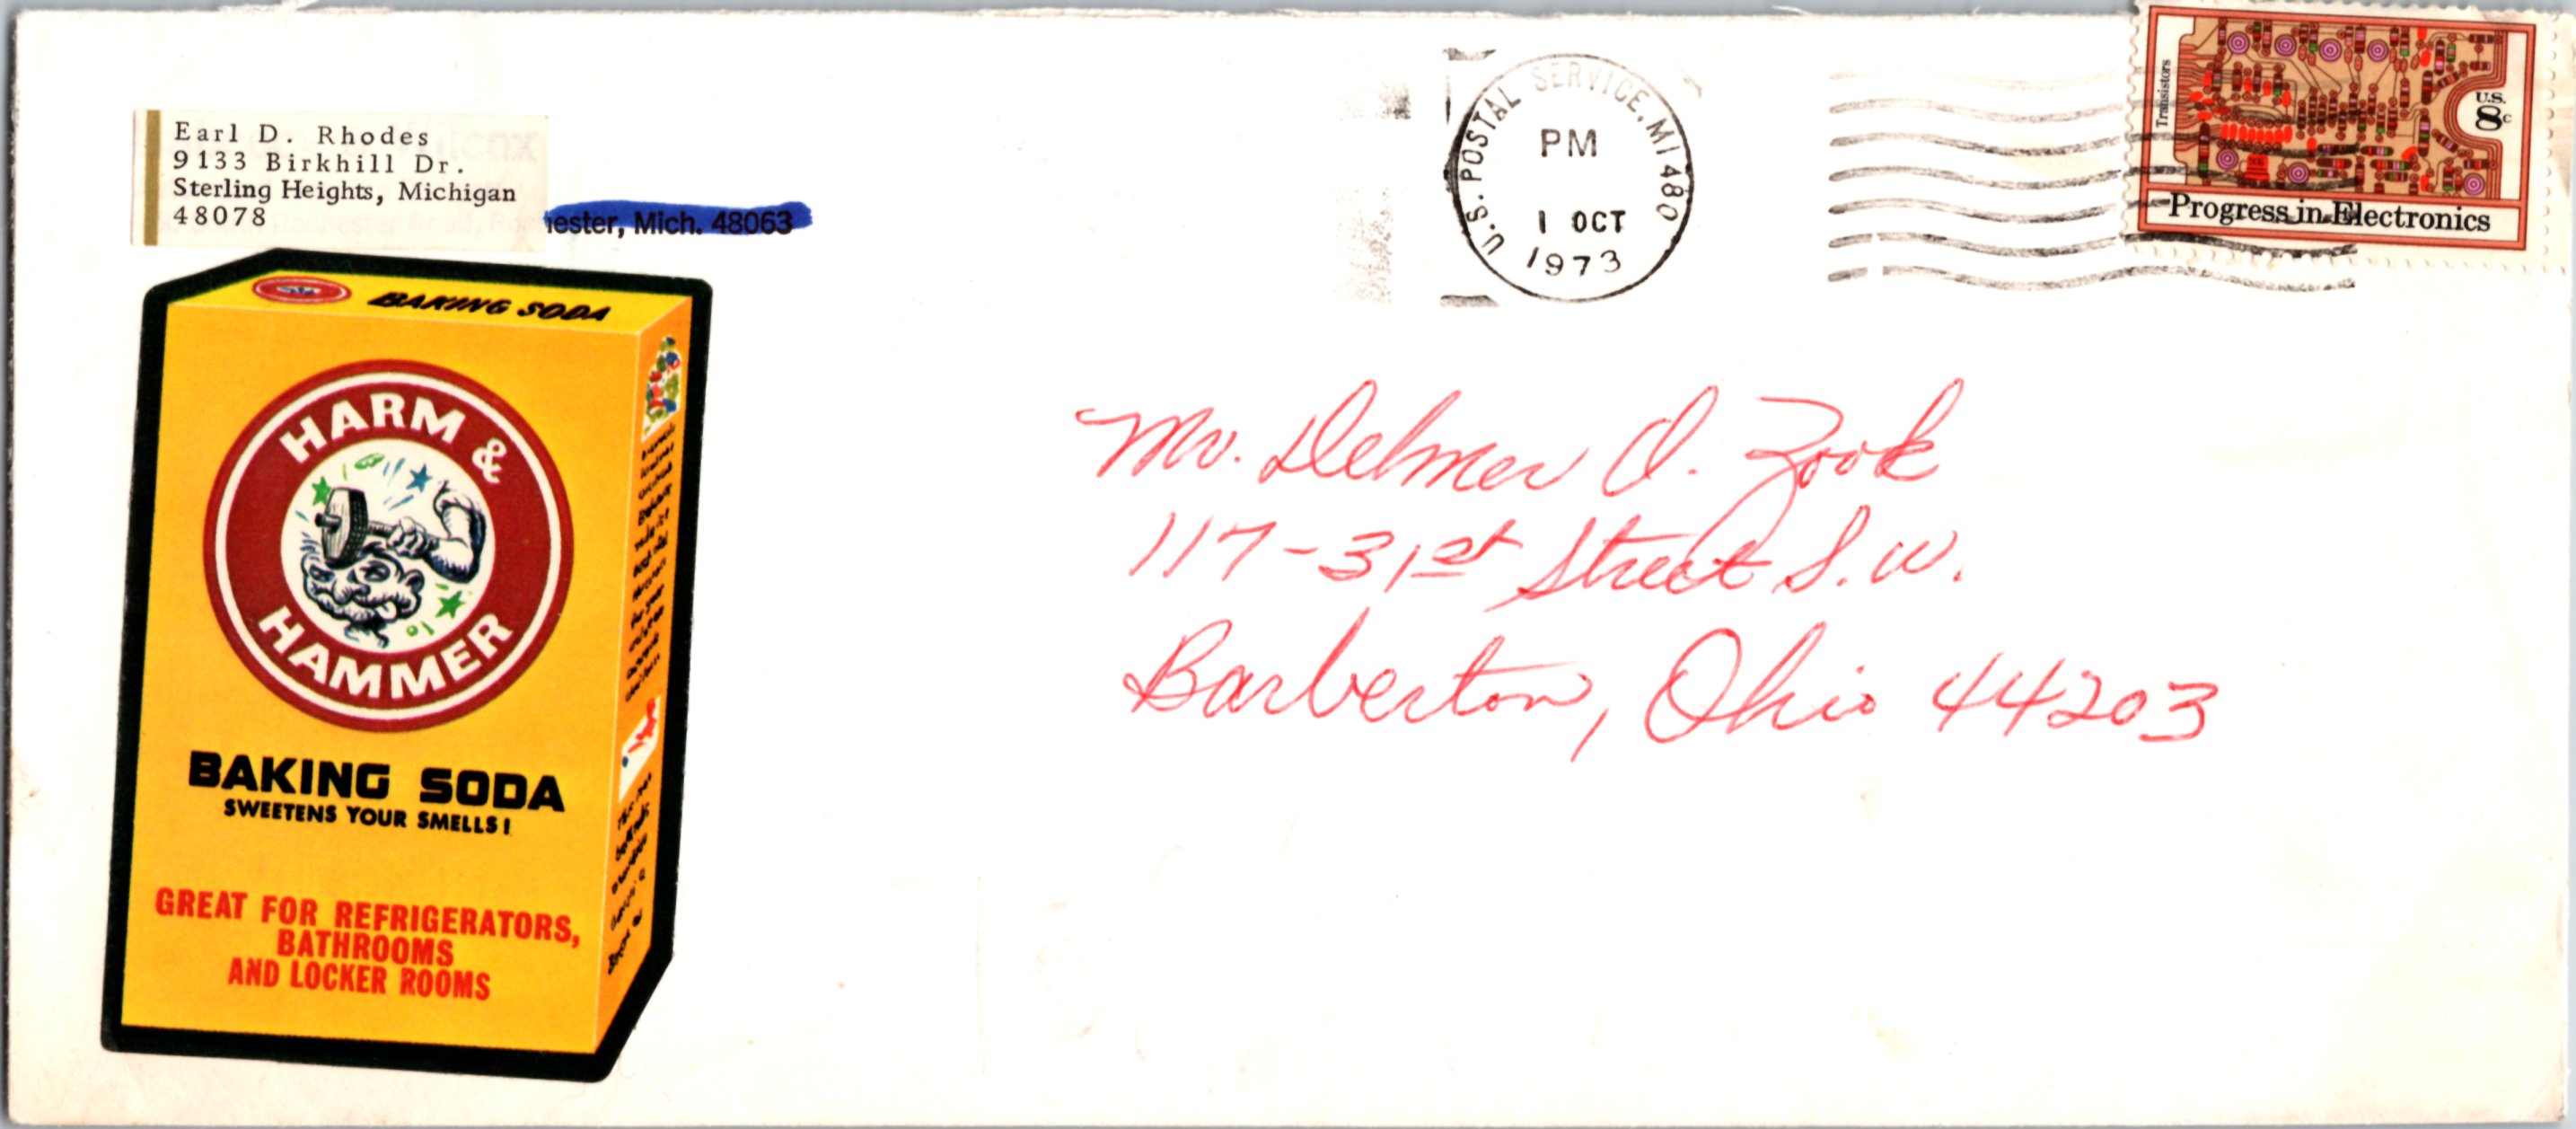 Earl D. Rhodes
9133 Birkhill Dr.
Sterling Heights, Michigan
48078
Rochester Road,
ester, Mich. 48063
U.S. POSTAL SERVICE, MI 480
PM
1 OCT
1973
Transistors
U.S.
8c
Progress in Electronics
BAKING SODA
HARM &
HAMMER
BAKING SODA
SWEETENS YOUR SMELLS!
GREAT FOR REFRIGERATORS,
BATHROOMS
AND LOCKER ROOMS
Mr. Delmer O. Zook
117-31st Street S.W.
Barberton, Ohio 44203